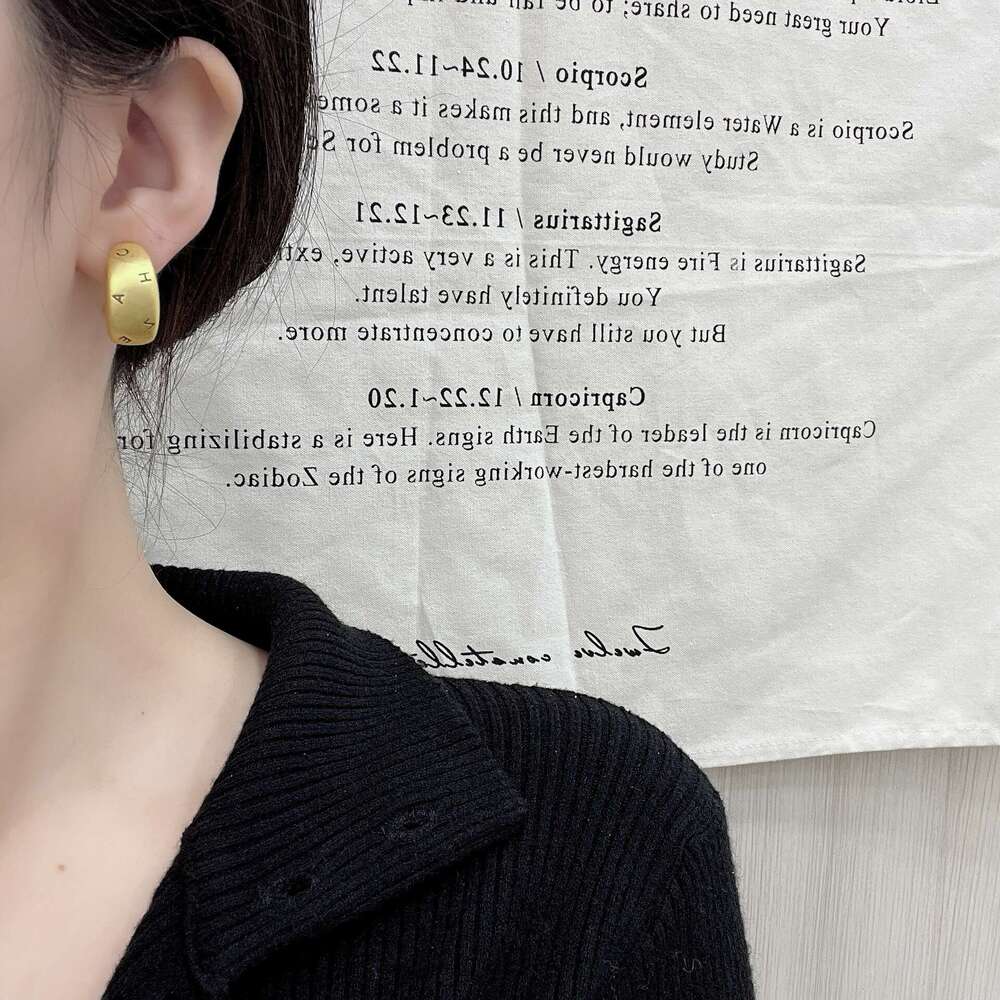 Your great need to share; to be fair and
Scorpio / 10.24~11.22
Scorpio is a Water element, and this makes it a some
Study would never be a problem for Sc
Sagittarius / 11.23~12.21
Sagittarius is Fire energy. This is a very active, ext
You definitely have talent.
But you still have to concentrate more.
Capricorn / 12.22~1.20
Capricorn is the leader of the Earth signs. Here is a stabilizing for
one of the hardest-working signs of the Zodiac.
Twelve constell
C H A V E